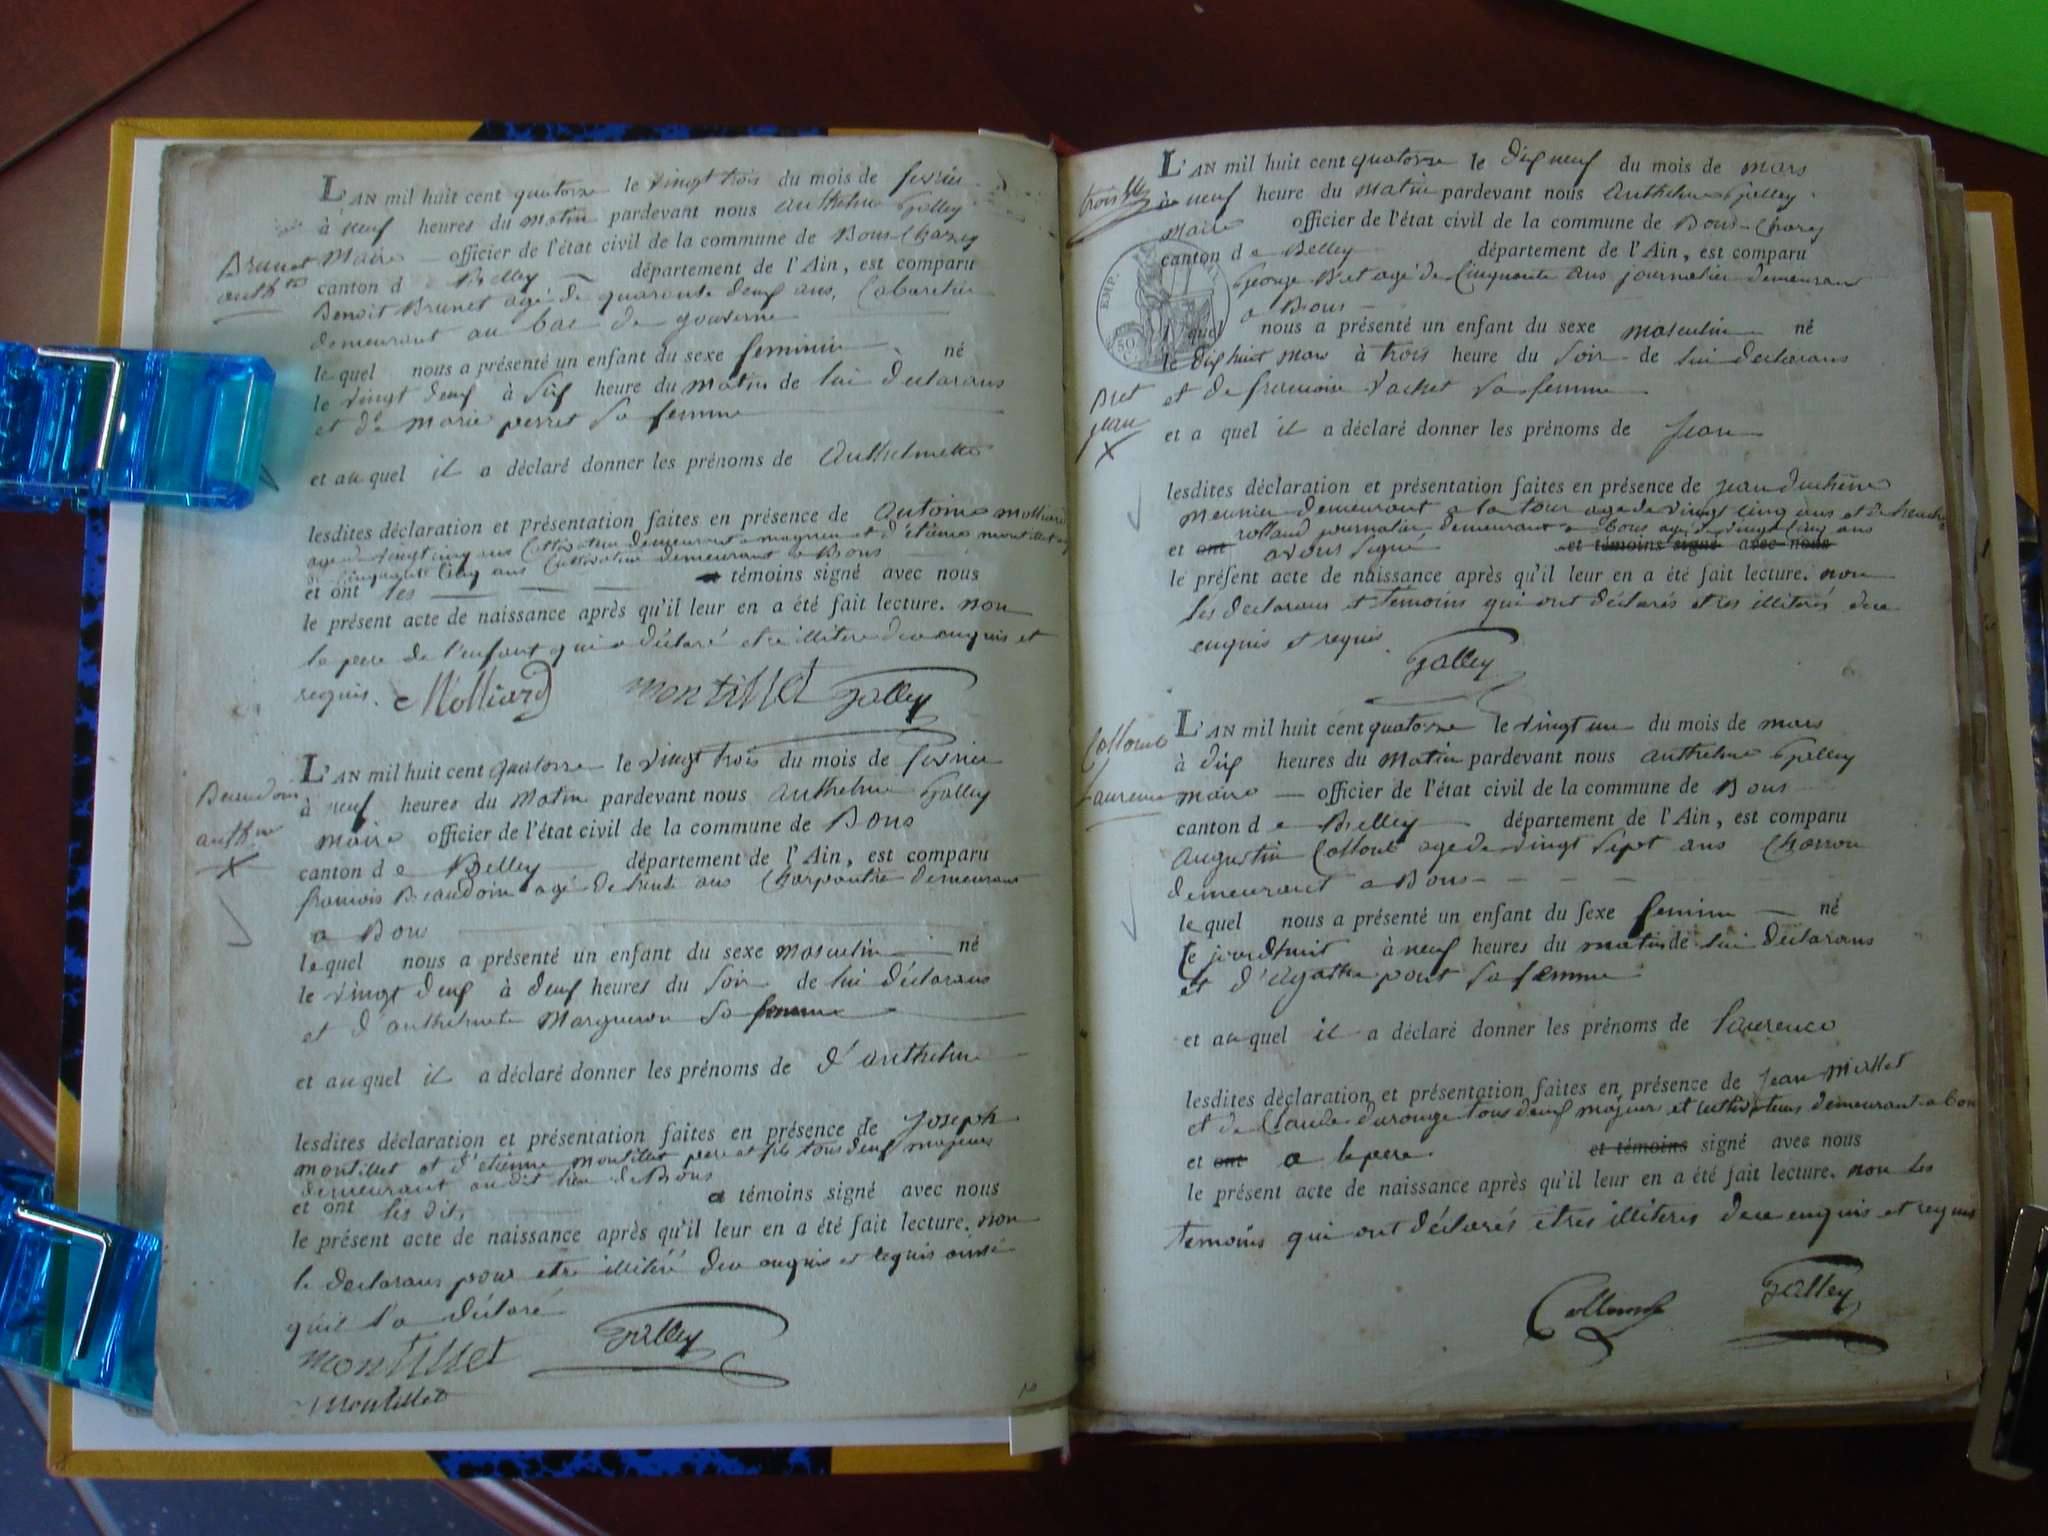 L'AN mil huit cent quatorze le vingt trois du mois de fevrier
à neuf heures du matin pardevant nous anthelme Galley
Maire officier de l'état civil de la commune de Bons-Chazey
canton d Belley département de l'Ain, est comparu
Brunet
anthte
Benoit Brunet agé de quarante deux ans, Cabaretier
demeurant au bac de gouverne
le quel nous a présenté un enfant du sexe feminin né
le vingt deux à six heure du matin de lui declarans
et de marie perret sa femme
et au quel il a déclaré donner les prénoms de Anthelmette
lesdites déclaration et présentation faites en présence de antoine molliard
agé de vingt cinq ans Cultivateur demeurant a magnieu et d'étienne montillet agé
de cinquante cinq ans Cultivateur demeurant a Bons
et ont les témoins signé avec nous
le présent acte de naissance après qu'il leur en a été fait lecture. non
le pere de l'enfant qui a déclaré etre illitere de ce enquis et
requis. Molliard montillet Galley
L'AN mil huit cent quatorze le vingt trois du mois de fevrier
à neuf heures du matin pardevant nous anthelme Galley
maire officier de l'état civil de la commune de Bons
canton d e Belley département de l'Ain, est comparu
Beaudoin
anthme
francois Beaudoin agé de trente ans Charpentier demeurant
a Bons
le quel nous a présenté un enfant du sexe masculin né
le vingt deux à deux heures du soir de lui déclarans
et d'anthelmete Margueron sa femme
et au quel il a déclaré donner les prénoms de d'anthelme
lesdites déclaration et présentation faites en présence de Joseph
montillet et d'etienne montillet pere et fils tous deux majeurs
demeurant au dit lieu de Bons
et ont les dits témoins signé avec nous
le présent acte de naissance après qu'il leur en a été fait lecture. non
le declarans pour etre illitéré de ce enquis et requis ainsi
qu'il l'a déclaré
montillet Galley
Montillet
L'AN mil huit cent quatorze le dix neuf du mois de mars
à neuf heure du matin pardevant nous Anthelme Galley
maire officier de l'état civil de la commune de Bons-Chazey
canton d e Belley département de l'Ain, est comparu
EMP.
50
C.
George Bret agé de Cinquante ans journalier demeurant
a Bons
quel nous a présenté un enfant du sexe masculin né
le dix huit mars à trois heure du soir de lui declarans
et de francoise vachet sa femme
Bret
jean
et a quel il a déclaré donner les prénoms de Jean
lesdites déclaration et présentation faites en présence de jean duchêne
meunier demeurant a la tour agé de vingt cinq ans et de
rolland journalier demeurant a Bons agé de vingt cinq ans
et ont avons signé et témoins signé avec nous
le présent acte de naissance après qu'il leur en a été fait lecture. non
les declarans et temoins qui ont déclarés etres illiterés de ce
enquis et requis.
Galley
L'AN mil huit cent quatorze le vingt un du mois de mars
à dix heures du matin pardevant nous anthelme Galley
maire officier de l'état civil de la commune de Bons
canton d e Belley département de l'Ain, est comparu
Collomb
Laurence
augustin Collomb agé de vingt sept ans Charron
demeurant a Bons
le quel nous a présenté un enfant du sexe feminin né
Ce jourdhuit à neuf heures du matin de lui déclarans
et d'agathe pont sa femme
et au quel il a déclaré donner les prénoms de laurence
lesdites déclaration et présentation faites en présence de jean
et de Claude durouge tous deux majeur et cultivateurs demeurant a bons
et ont a le pere et témoins signé avec nous
le présent acte de naissance après qu'il leur en a été fait lecture. non les
temoins qui ont déclarés etres illiteres de ce enquis et requis
Collomb Galley